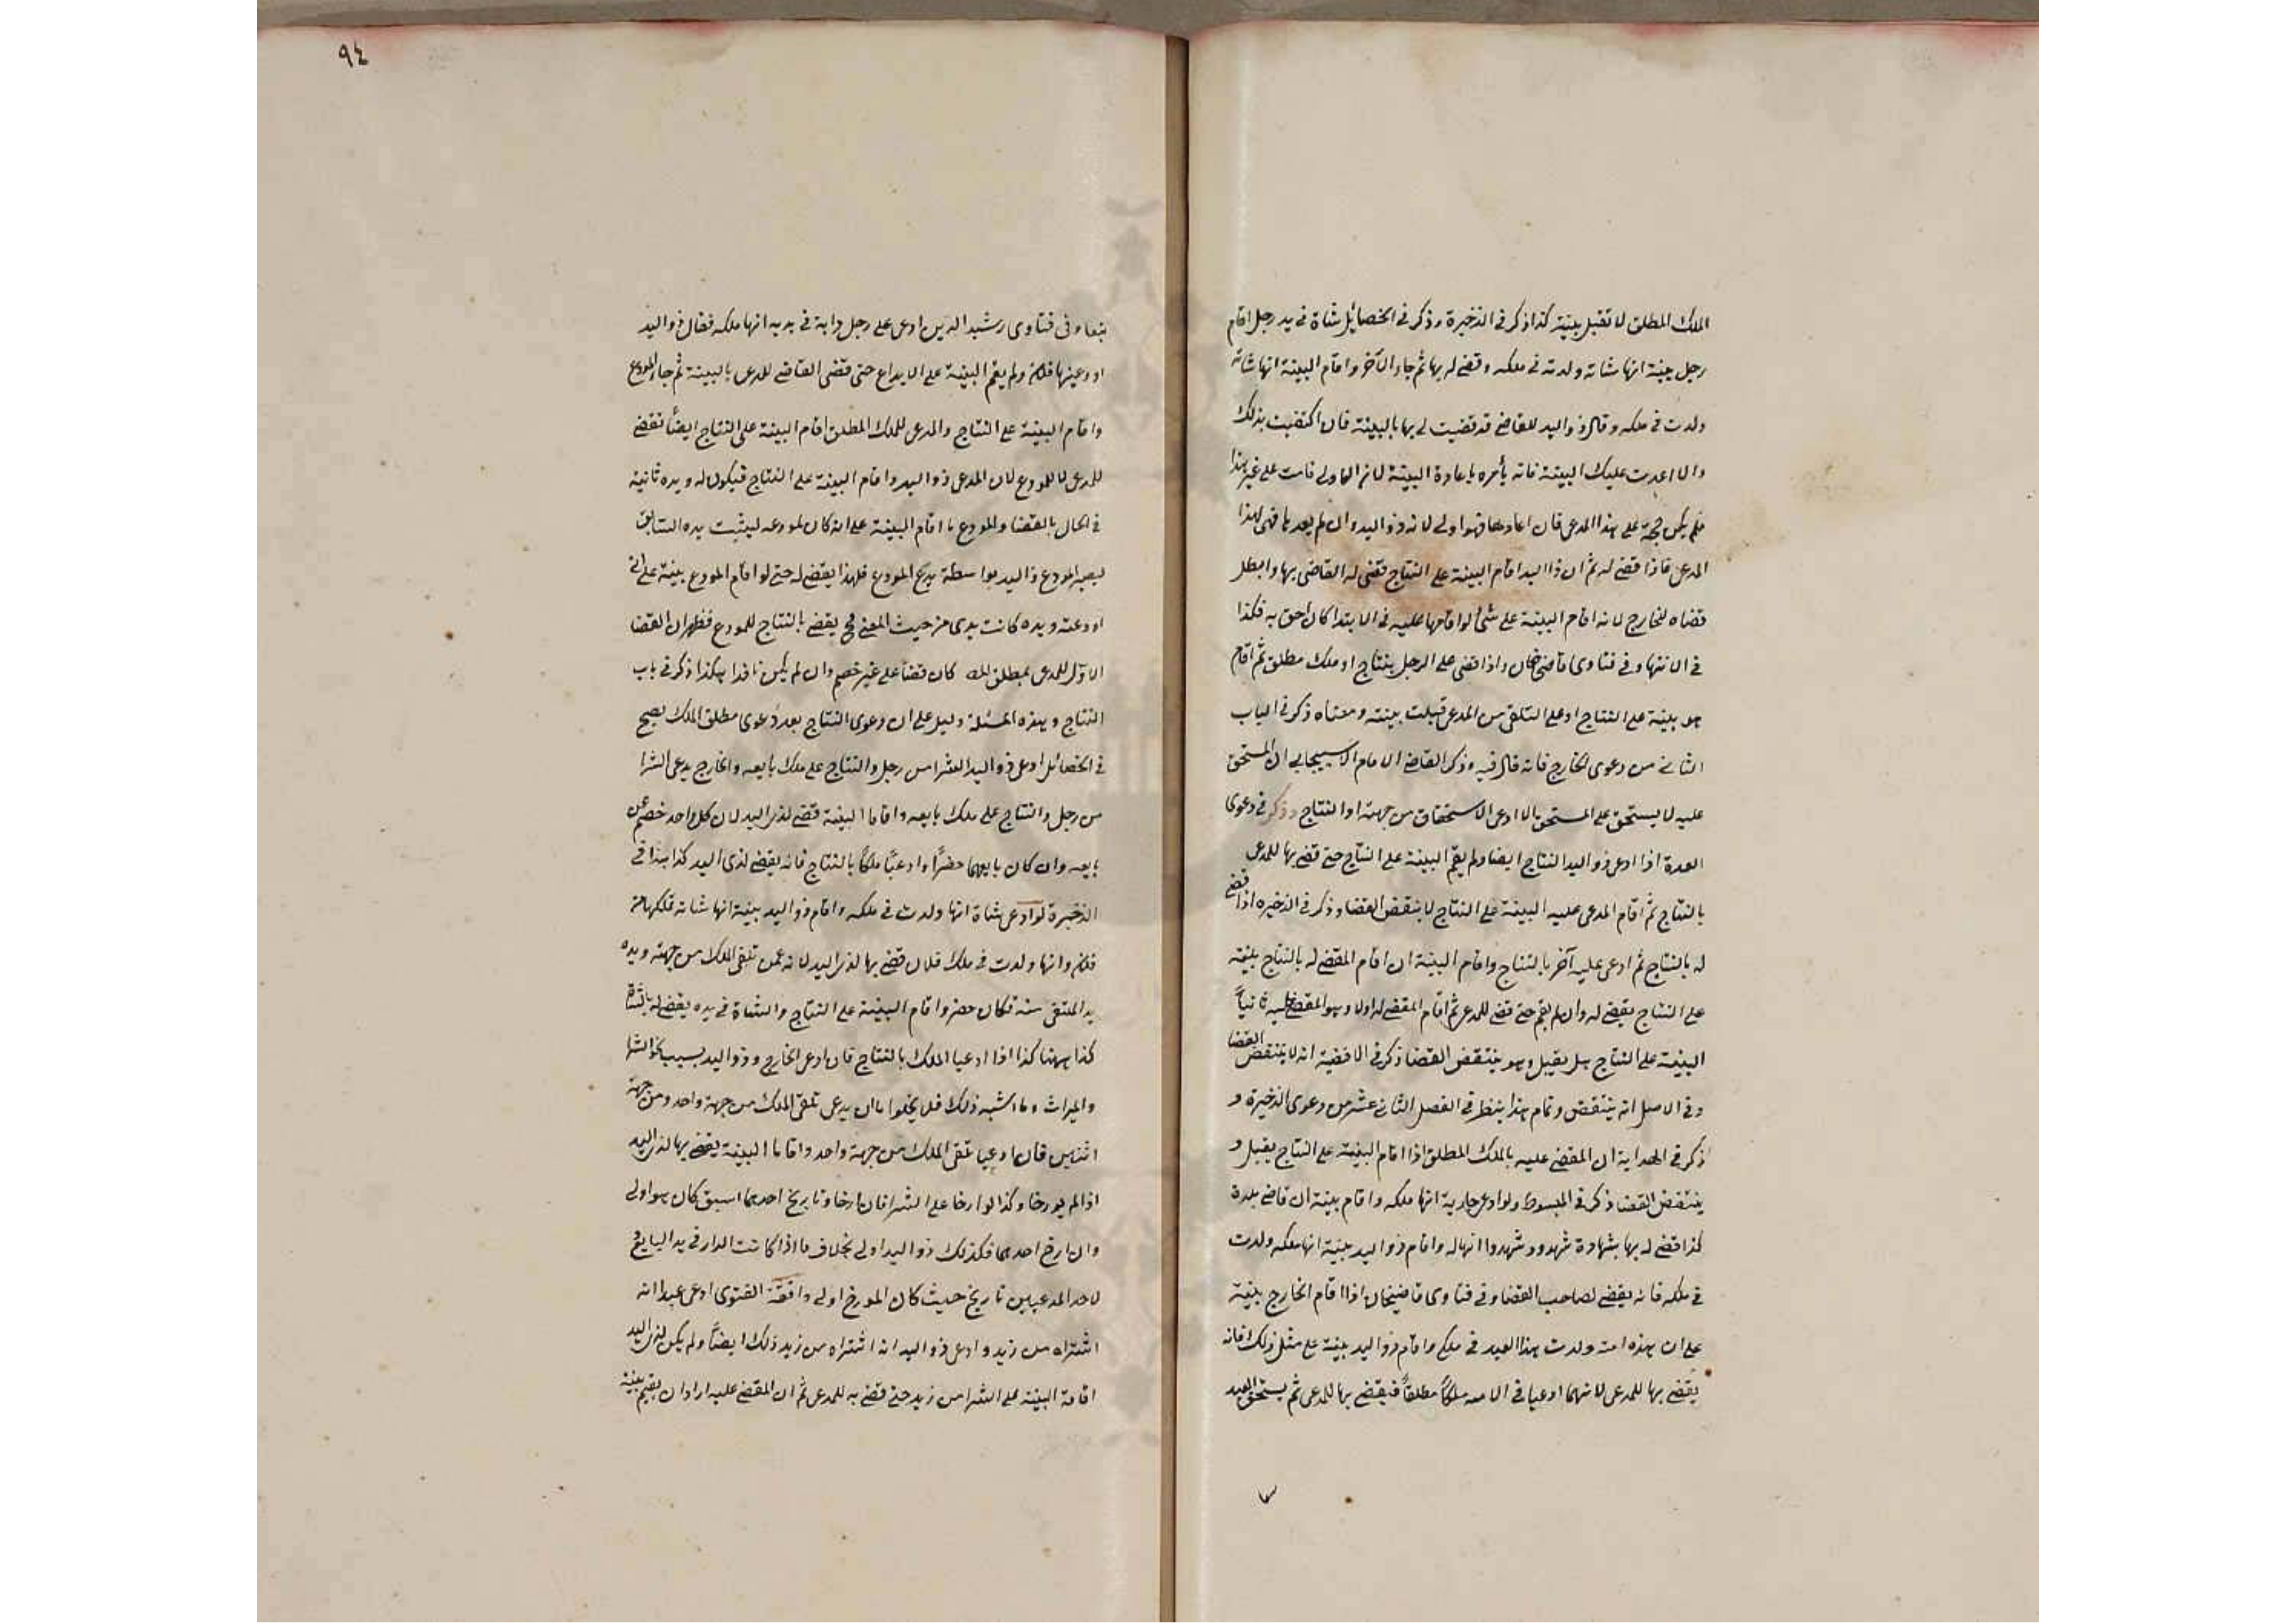 الملك المطلق لا تقبل بينته كذا ذكر في الذخيرة وذكر في الخصائل شاة في يد رجل اقام
رجل بينة انها شاته ولدته في ملكه وقضى له بها ثم جاء الآخر واقام البينة انها شاته
ولدت في ملكه وقال ذو اليد للقاضي قد قضيت لي بها بالبينة فان اكتفيت بذلك
والا اعدت عليك البينة فانه يأمره باعادة البينة لانه الاولى قامت على غير هذا
فلم يكن حجة على هذا المدعى فان اعادها فهو اولى لانه ذو اليد وان لم يعدها قضى لهذا
المدعى فاذا قضى له ثم ان ذا اليد اقام البينة على النتاج قضى له القاضى بها وابطل
قضاه للخارج لانه اقام البينة على شئ لو اقامها عليه في الابتدا كان احق به فكذا
في الانتها وفي فتاوى قاضى خان واذا قضى على الرجل بنتاج او ملك مطلق ثم اقام
هو بينة على النتاج او على التلقى من المدعى قبلت بينته ومعناه ذكر في الباب
الثاني من دعوى الخارج فانه قال فيه وذكر القاضي الامام الاسبيجابي ان المستحق
عليه لا يستحق على المستحق الا ادعى الاستحقاق من جهته او النتاج وذكر في دعوى
العدة اذا ادعى ذو اليد النتاج ايضا ولم يقم البينة على النتاج حتى قضى بها للمدعى
بالنتاج ثم اقام المدعى عليه البينة على النتاج لا ينقض القضا وذكر في الذخيره اذا قضى
له بالنتاج ثم ادعى عليه آخر بالنتاج واقام البينة ان اقام المقضى له بالنتاج بينة
على النتاج يقضى له وان لم يقم حتى قضى للمدعى ثم اقام المقضى له اولا وهو المقضى عليه ثانياً
البينة على النتاج هل يقبل وهو ينتقض القضا ذكر في الاقضية انه لا ينتقض القضا
وفي الاصل انه ينتقض وتمام هذا ينظر في الفصل الثاني عشر من دعوى الذخيرة و
ذكر في الهداية ان المقضى عليه بالملك المطلق اذا اقام البينة على النتاج يقبل و
ينتقض القضا ذكر في المبسوط ولو ادعى جارية انها ملكه واقام بينة ان قاضى بلدة
كذا قضى له بها بشهادة شهود وشهدوا انها له واقام ذو اليد بينة انها ملكه ولدت
في ملكه فانه يقضى لصاحب القضا وفي فتاوى قاضيخان اذا اقام الخارج بينة
على ان هذه امته ولدت هذا العبد في ملكي واقام ذو اليد بينة على مثل ذلك فانه
يقضى بها للمدعى لانهما ادعيا في الامه ملكاً مطلقاً فيقضى بها للمدعى ثم يستحق العبد
٩٤
تبعا وفى فتاوى رشيد الدين ادعى على رجل دابة في يديه انها ملكه فقال ذو اليد
اودعنيها فلان ولم يقم البينة على الايداع حتى قضى القاضي للمدعى بالبينة ثم جاء المودع
واقام البينة على النتاج والمدعى للملك المطلق اقام البينة على النتاج ايضاً نقضى
للمدعى لا للمودع لان المدعى ذو اليد واقام البينة على النتاج فيكون له ويده ثانية
في الحال بالقضا والمودع ما اقام البينة على انه كان لمودعه ليثبت يده السابق
ليصير المودع ذا اليد بواسطة يد المودع فلهذا يقضى له حتى لو اقام المودع بينة على اني
اودعته ويده كانت يدى من حيث المعنى فح يقضى بالنتاج للمودع فظهر ان القضا
الاول للمدعى بمطلق الملك كان قضا على غير خصم وان لم يكن نافدا هكذا ذكر في باب
النتاج وهذه المسئلة دليل على ان دعوى النتاج بعد دعوى مطلق الملك يصح
في الخصائل ادعى ذو اليد الشرا من رجل والنتاج على ملك بايعه والخارج يدعى الشرا
من رجل والنتاج على ملك بايعه واقاما البينة قضى لذى اليد لان كل واحد خصم عن
بايعه وان كان بايعهما حضراً وادعيا ملكاً بالنتاج فانه يقضى لذى اليد كذا هذا في
الذخيرة لو ادعى شاة انها ولدت في ملكه واقام ذو اليد بينة انها شاته تملكها من
فلان وانها ولدت في ملك فلان قضى بها لذى اليد لانه عمن تلقى الملك من جهته ويده
يد المتلقى منه فكان حضر واقام البينة على النتاج والشاة في يده يقضى له بالشاة
كذا ههنا كذا اذا ادعيا الملك بالنتاج فان ادعى الخارج وذو اليد بسبب نحو الشرا
والميراث وما اشبه ذلك فلا يخلوا ما ان يدعى تلقى الملك من جهة واحد ومن جهة
اثنين فان ادعيا تلقى الملك من جهة واحد واقاما البينة يقضى بها لذى اليد
اذا لم يورخا وكذا لو ارخا على الشرا فان ارخا وتاريخ احدهما اسبق كان هو اولى
وان ارخ احدهما فكذلك ذو اليد اولى بخلاف ما اذا كانت الدار في يد البايع
لاحد المدعيين تاريخ حيث كان المورخ اولى واقعة الفتوى ادعى عبدا انه
اشتراه من زيد وادعى ذو اليد انه اشتراه من زيد ذلك ايضاً ولم يكن لذى اليد
اقامة البينة على الشرا من زيد حتى قضى به للمدعى ثم ان المقضى عليه اراد ان يقيم بينة